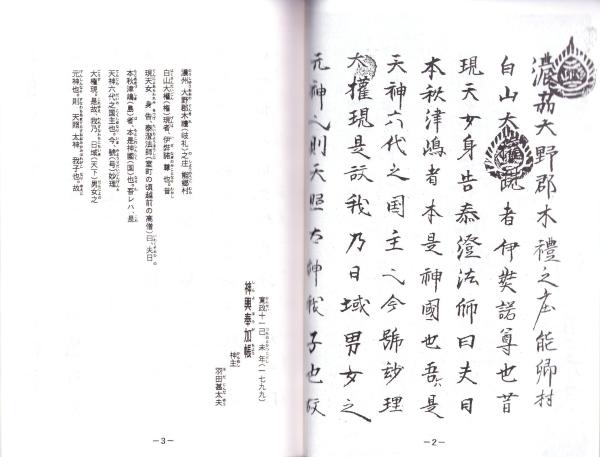 濃州大野郡木禮之庄能卿村
白山大權現者伊弉諾尊也昔
現天女身告泰澄法師曰夫日
本秋津嶋者本是神國也吾是
天神六代之国主也今號妙理
大權現是故我乃日域男女之
元神也則天照太神我子也故
－2－
神輿奉加帳
寛政十一己未年(一七九九)
神主
羽田甚太夫
濃州 大野郡木禮(岐礼)之庄 能郷村
白山大権(権)現者、伊弉諸 尊也。昔
現天女、身告、泰澄法師(室町の頃越前の高僧)曰、夫日
本秋津嶋(島)者、本是神國(国)也。吾レハ、是
天神六代之国主也。今、號(号)妙理
大権現。是故、我乃、日域(天下)男女之
元神也。則、天照、太神、我子也。故
－3－